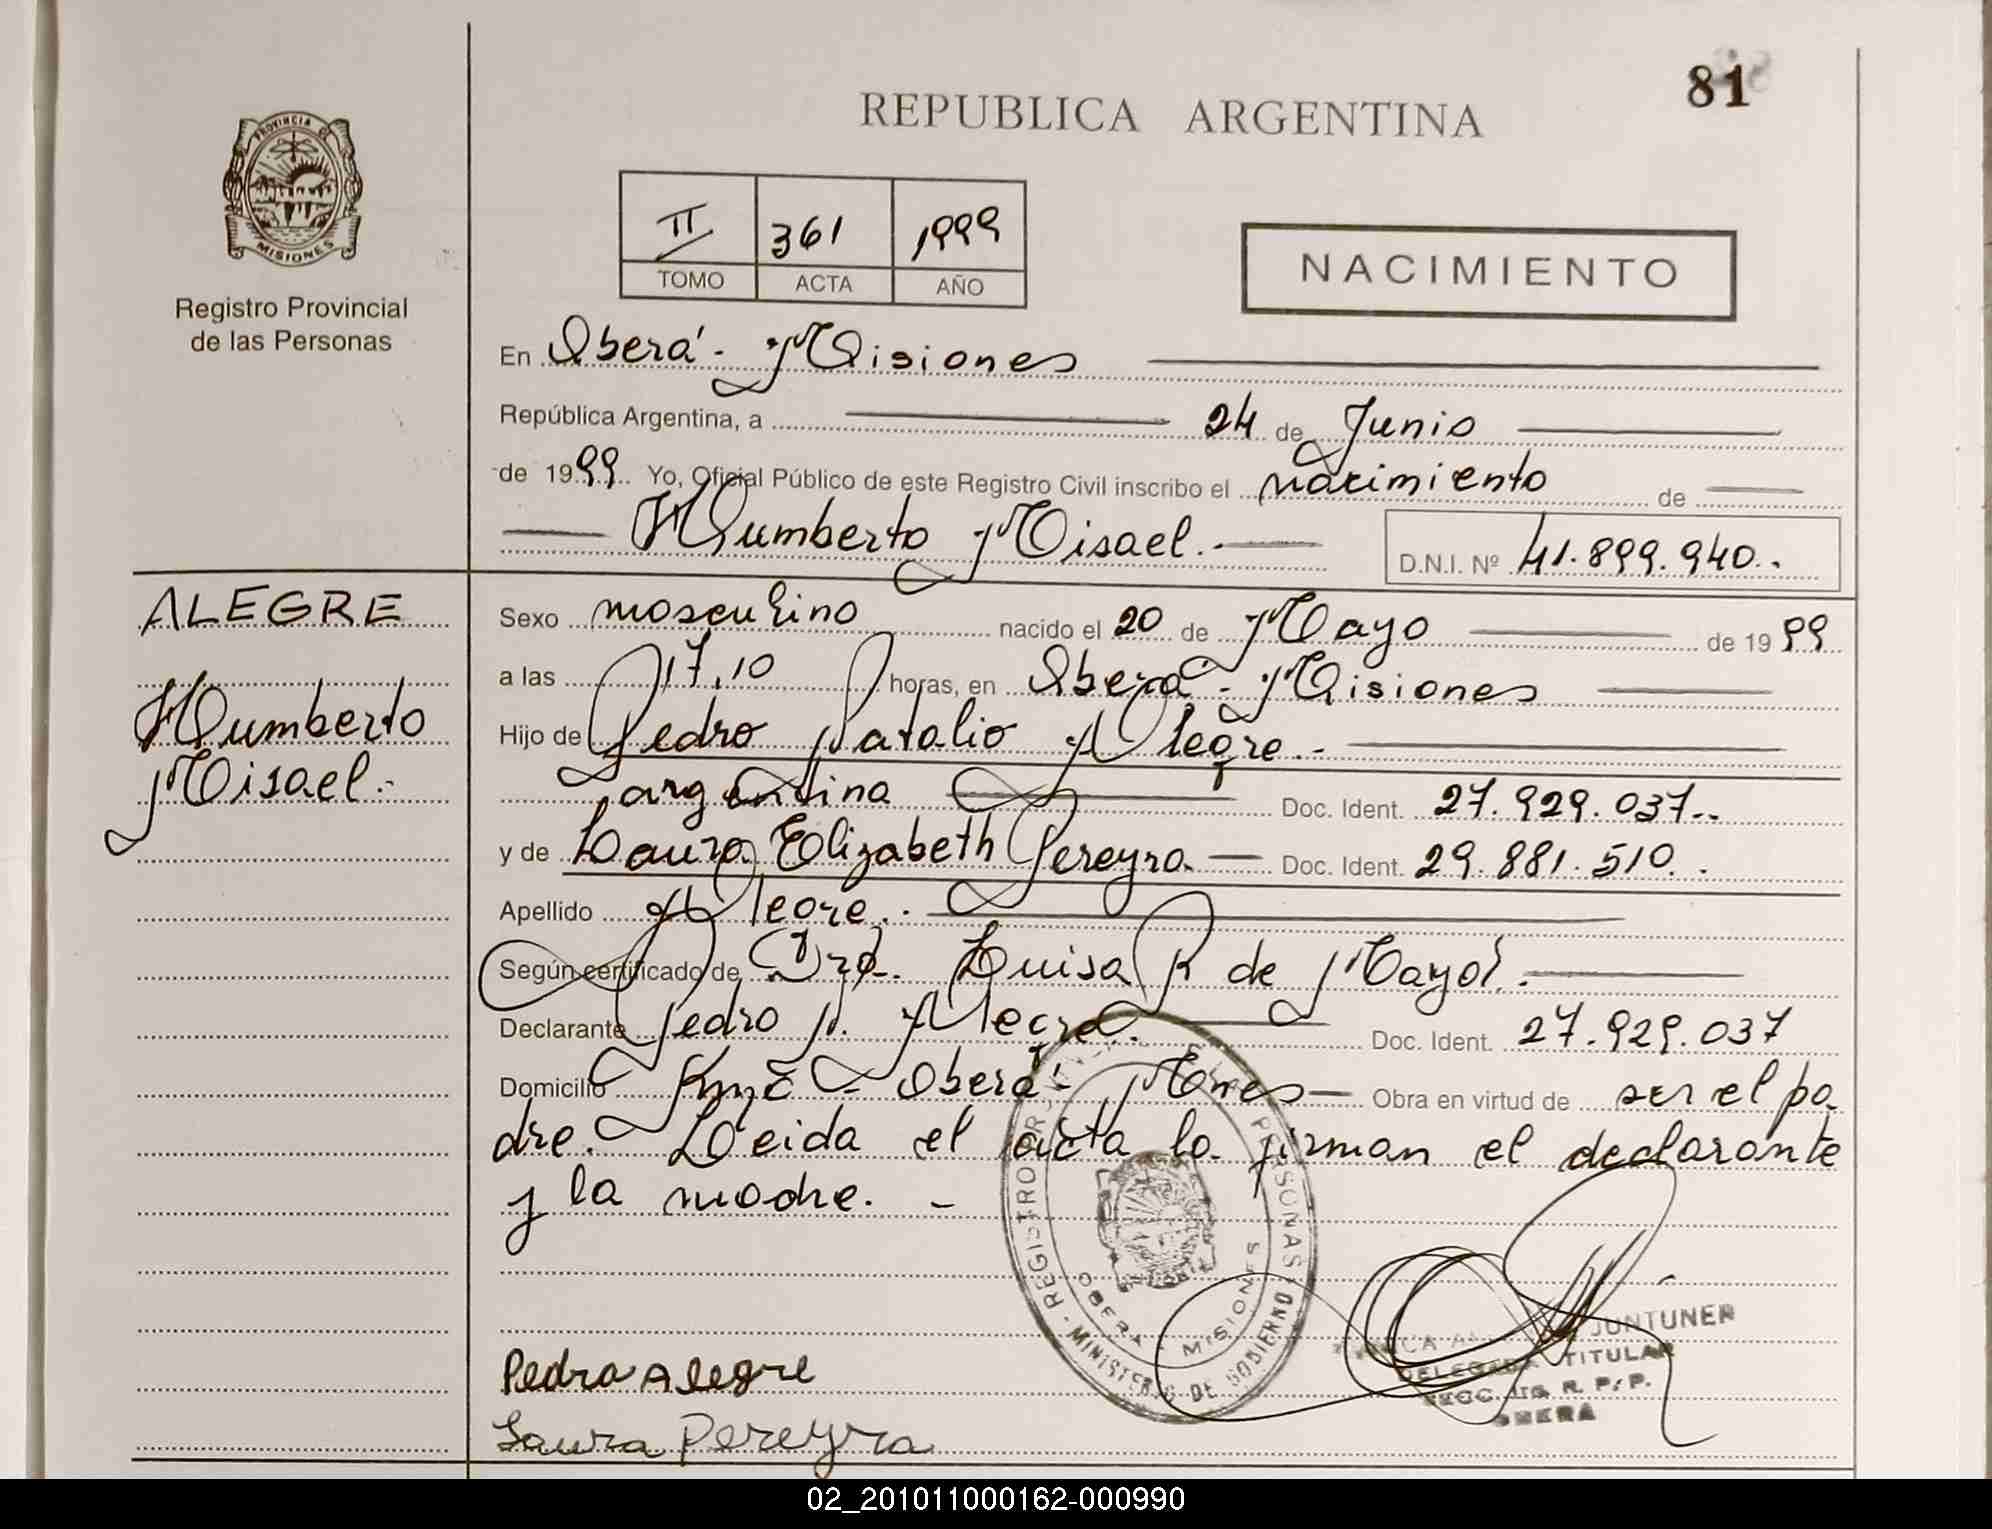 81
REPUBLICA ARGENTINA
PROVINCIA DE
MISIONES
Registro Provincial
de las Personas
II 361 1999
TOMO ACTA AÑO
NACIMIENTO
En Oberá - Misiones
República Argentina, a 24 de Junio
de 1999 Yo, Oficial Público de este Registro Civil inscribo el nacimiento de
Humberto Misael.- D.N.I. Nº 41.899.940.-
ALEGRE
Humberto
Misael.-
Sexo masculino nacido el 20 de Mayo de 1999
a las 17,10 horas, en Oberá - Misiones
Hijo de Pedro Natalio Alegre.-
argentina Doc. Ident. 27.929.037.-
y de Laura Elizabeth Pereyra.- Doc. Ident. 29.881.510.-
Apellido Alegre.-
Según certificado de Dra. Luisa R de Mayol.-
Declarante Pedro N. Alegre. Doc. Ident. 27.929.037
Domicilio Oberá - Mnes Obra en virtud de ser el pa-
dre. Leida el acta la firman el declarante
y la madre.-
MINISTERIO DE GOBIERNO
OBERA MISIONES
Pedro Alegre
Laura Pereyra
JUNTUNER
DELEGADA TITULAR
R. P. P.
OBERA
02_201011000162-000990